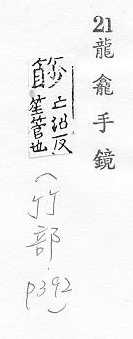 21龍龕手鏡
亡沼反
笙管也
(竹部.p392)